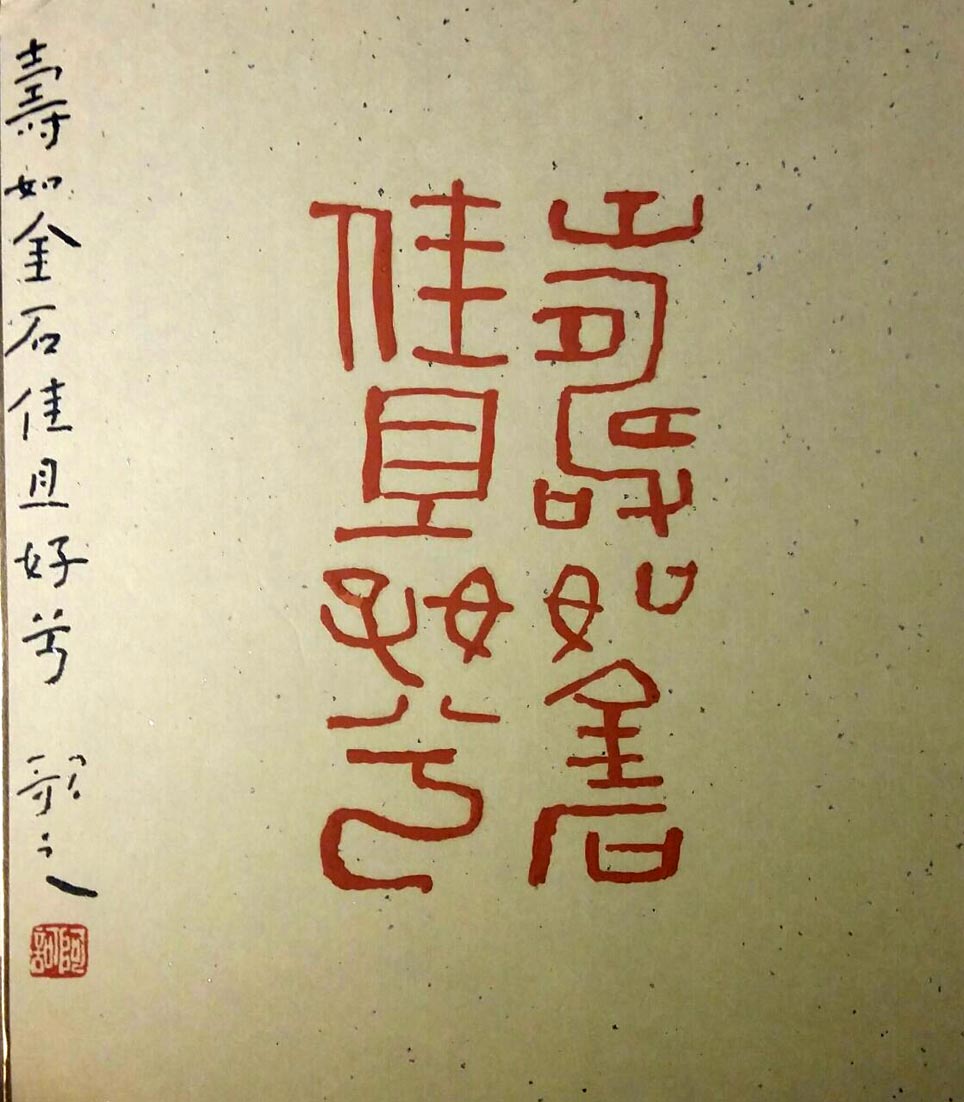 壽如金石
佳且好兮
壽如金石佳且好兮